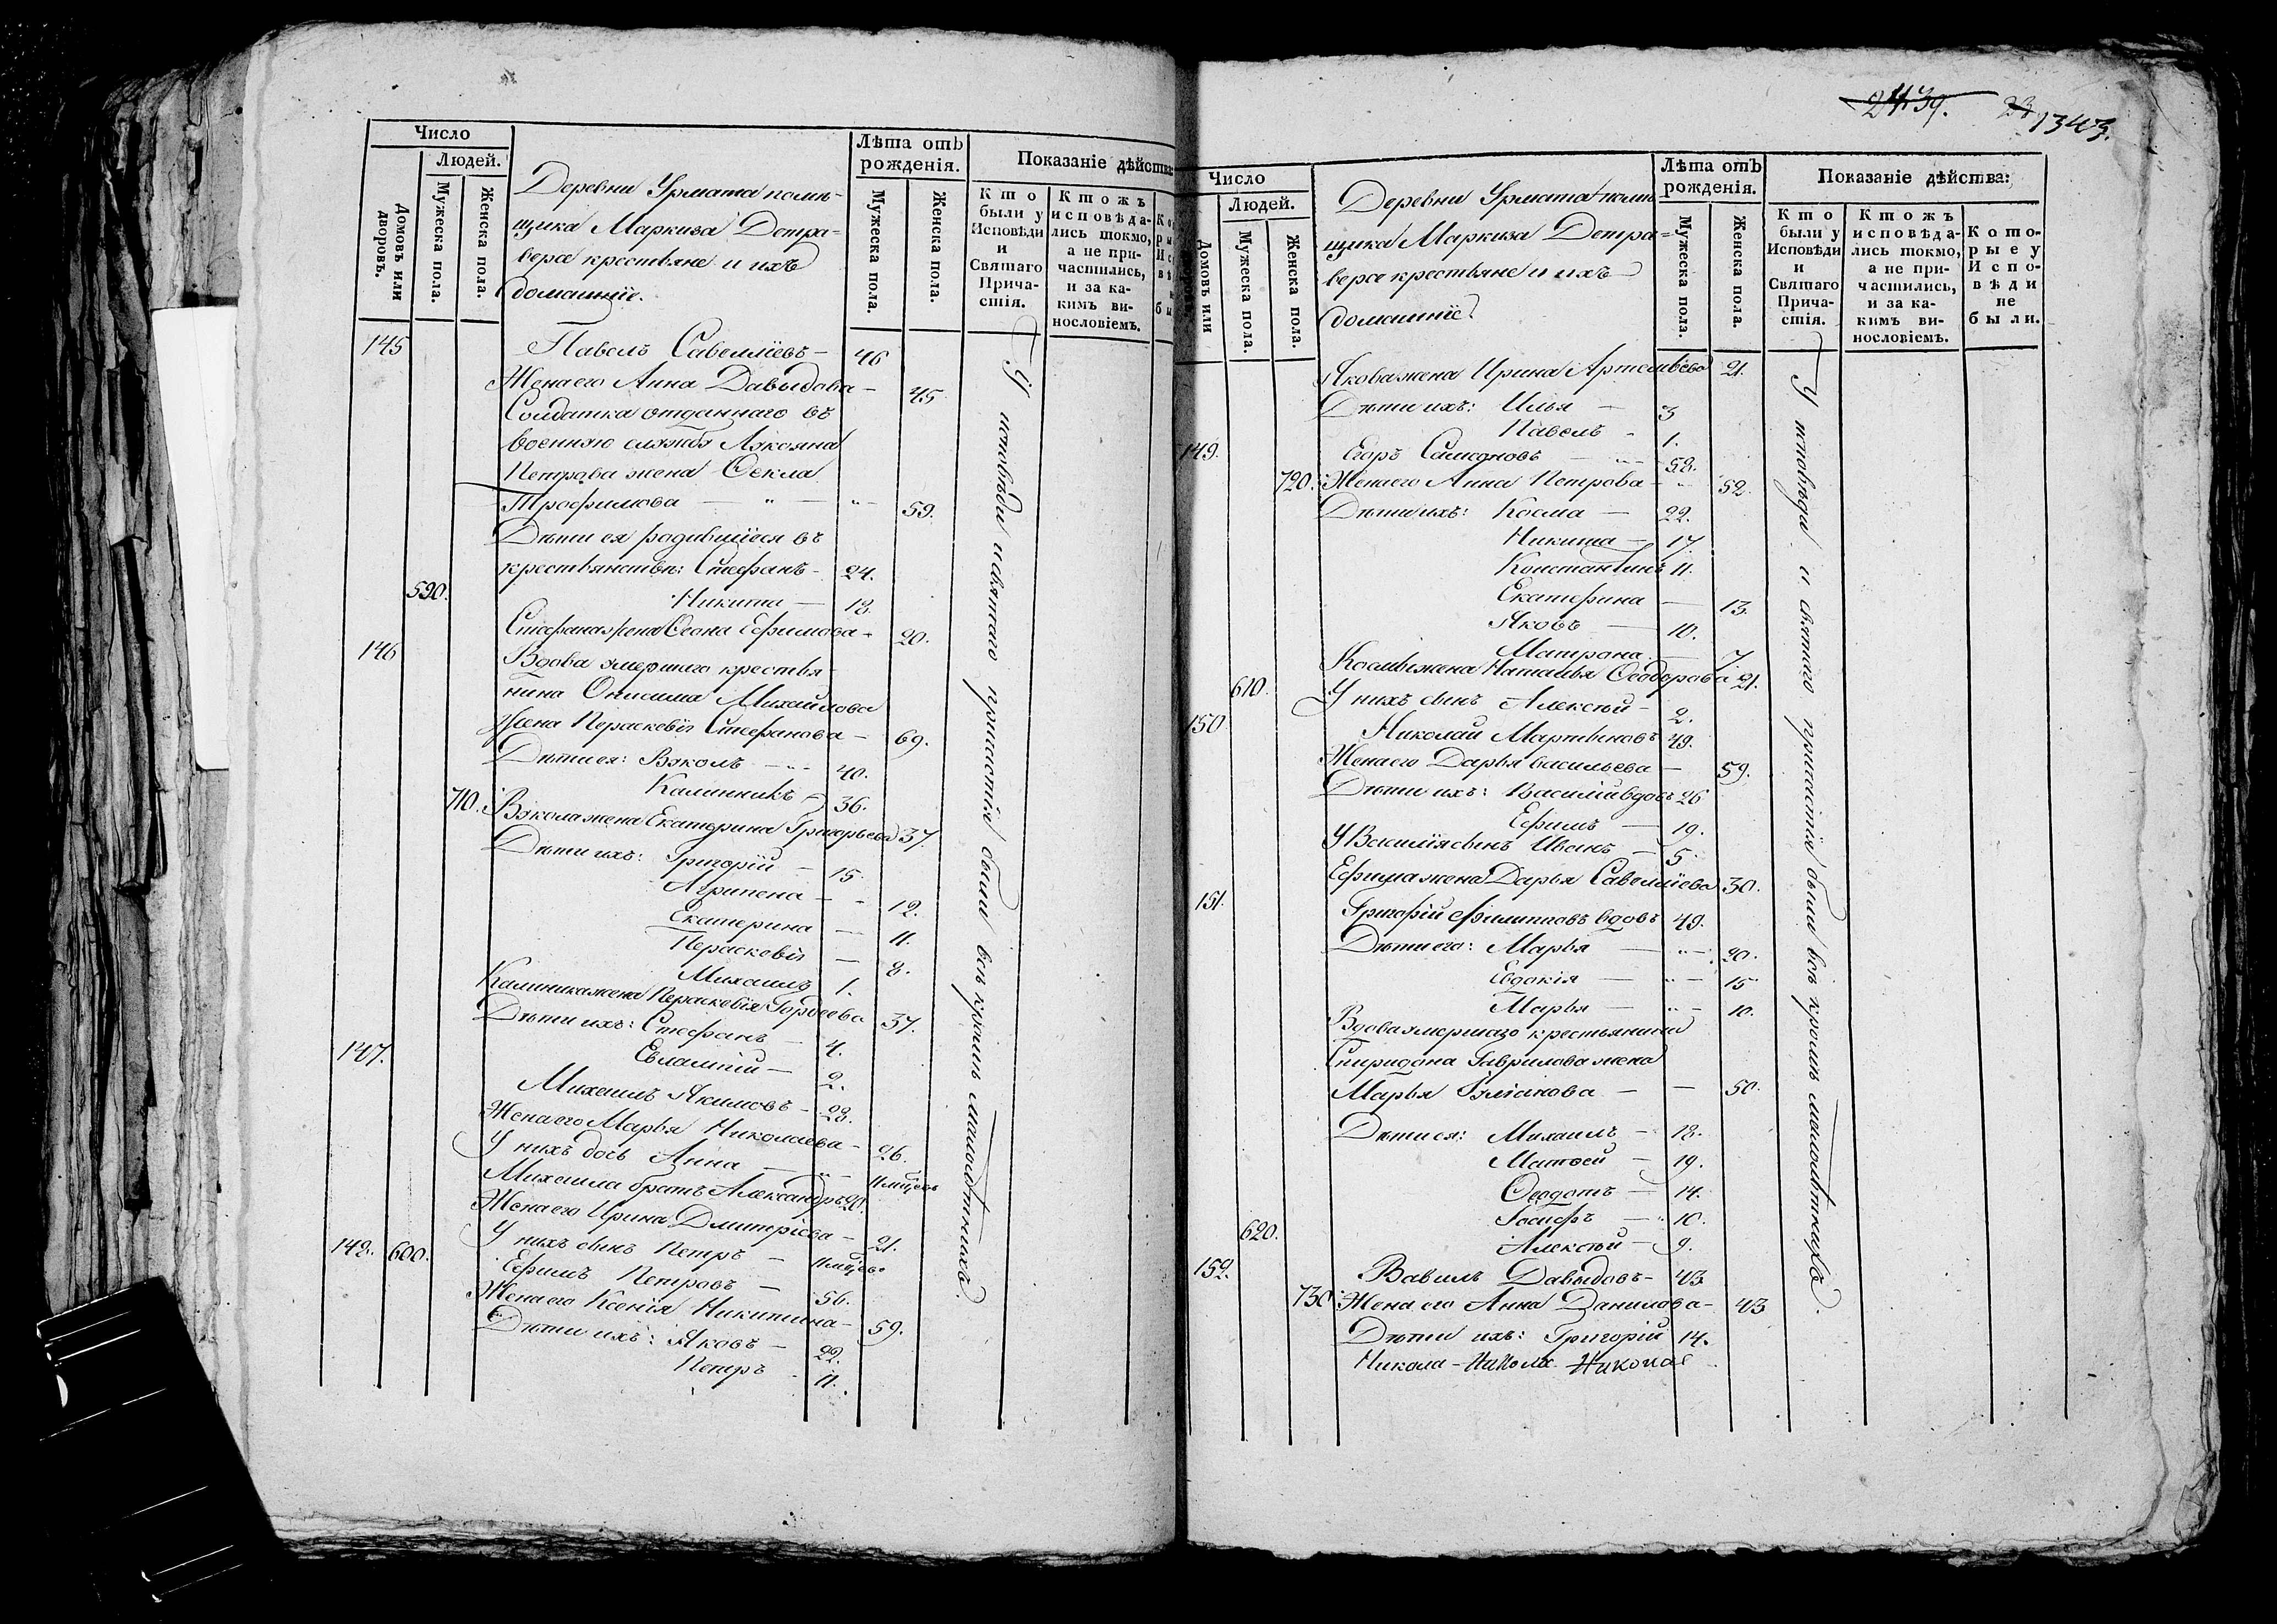 2439. 23 1343.
Число
Людей.
Домовъ или дворовъ.
Мужеска пола.
Женска пола.
Деревни Урмата помѣ-
щика Маркиза Детра-
верса крестьяне и ихъ
домашніе.
Лѣта отъ рожденія.
Мужеска пола.
Женска пола.
Показаніе дѣйства:
Кто были у Исповѣди и Святаго Причастія.
Ктожъ исповѣдались токмо, а не причастились, и за какимъ винословіемъ.
145 Павелъ Савеліевъ - 46
Жена его Анна Давыдова - 45
Солдатка отданнаго въ
военную службу Лукояна
Петрова жена Ѳекла
Трофимова - " - "- 59.
Дѣти ея родившіеся въ
крестьянствѣ: Стефанъ - 24.
590. Никита - 18.
Стефана жена Ѳеона Ефимова - 20.
146 Вдова умершаго крестья-
нина Онисима Михайлова
жена Пераскевія Стефанова - 69.
Дѣти ея: Вуколъ - 40.
Калинникъ - 36.
710. Вукола жена Екатерина Григорьева 37.
Дѣти ихъ: Григорій - 15.
Агрипена - 12.
Екатерина - 11.
Перасковія - 8.
Михаилъ 1.
Калиника жена Пераскевія Гордеева 37.
Дѣти ихъ: Стефанъ - 4.
147. Евлампій - 2.
Михаилъ Якимовъ - 28.
Жена его Марья Николаева - 26.
У нихъ дочь Анна - "- 11 мѣсцовъ
Михаила братъ Александръ 20.
Жена его Ирина Дмитріева - 21.
У нихъ сынъ Петръ - 11 мѣсцовъ
148. 600. Ефимъ Петровъ - 56.
Жена его Ксенія Никитина - 59.
Дѣти ихъ: Яковъ - 22.
Петръ 11.
У исповѣди и святаго причастія были всѣ кромѣ малолѣтнихъ.
Число
Людей.
Домовъ или
Мужеска пола.
Женска пола.
Деревни Урмата помѣ
щика Маркиза Детра=
верса крестьяне и ихъ
домашніе
Лѣта отъ рожденія.
Мужеска пола.
Женска пола.
Показаніе дѣйства:
Кто были у Исповѣди и Святаго Причастія.
Ктожъ исповѣдались токмо, а не причастились, и за какимъ винословіемъ.
Которые у Исповѣди не были.
Якова жена Ирина Артемьева 21.
Дѣти ихъ: Илья - 3
Павелъ - 1.
149. Егоръ Самсоновъ - "- 58.
720. Жена его Анна Петрова - " 52.
Дѣти ихъ: Косма - 22.
Никита - 17.
Константинъ 11.
Екатерина - 13.
Яковъ - 10.
Матрона - 7.
Космы жена Наталья Ѳеодорова 21.
610. У нихъ сынъ Алексѣй - 2.
150 Николай Мартыновъ 49.
Жена его Дарья Васильева - 59.
Дѣти ихъ: Василій вдовъ 26
Ефимъ - 19.
У Василія сынъ Иванъ - 5
Ефима жена Дарья Савеліева 30.
151. Григорій Филипповъ вдовъ 49.
Дѣти его: Марья - "- 20.
Евдокія - "- 15
Марья - "- 10.
Вдова умершаго крестьянина
Спиридона Гаврилова жена
Марья - - 50.
Дѣти ея: Михаилъ - 18.
Матвей - 19.
Ѳеодотъ - 14.
Іосифъ - 10.
620. Алексѣй - 9.
152. Вавилъ Давыдовъ - 43
730 Жена его Анна Данилова - 43
Дѣти ихъ: Григорій 14.
Никола - Никола Николае
У исповѣди и святаго причастія были всѣ кромѣ малолѣтнихъ.